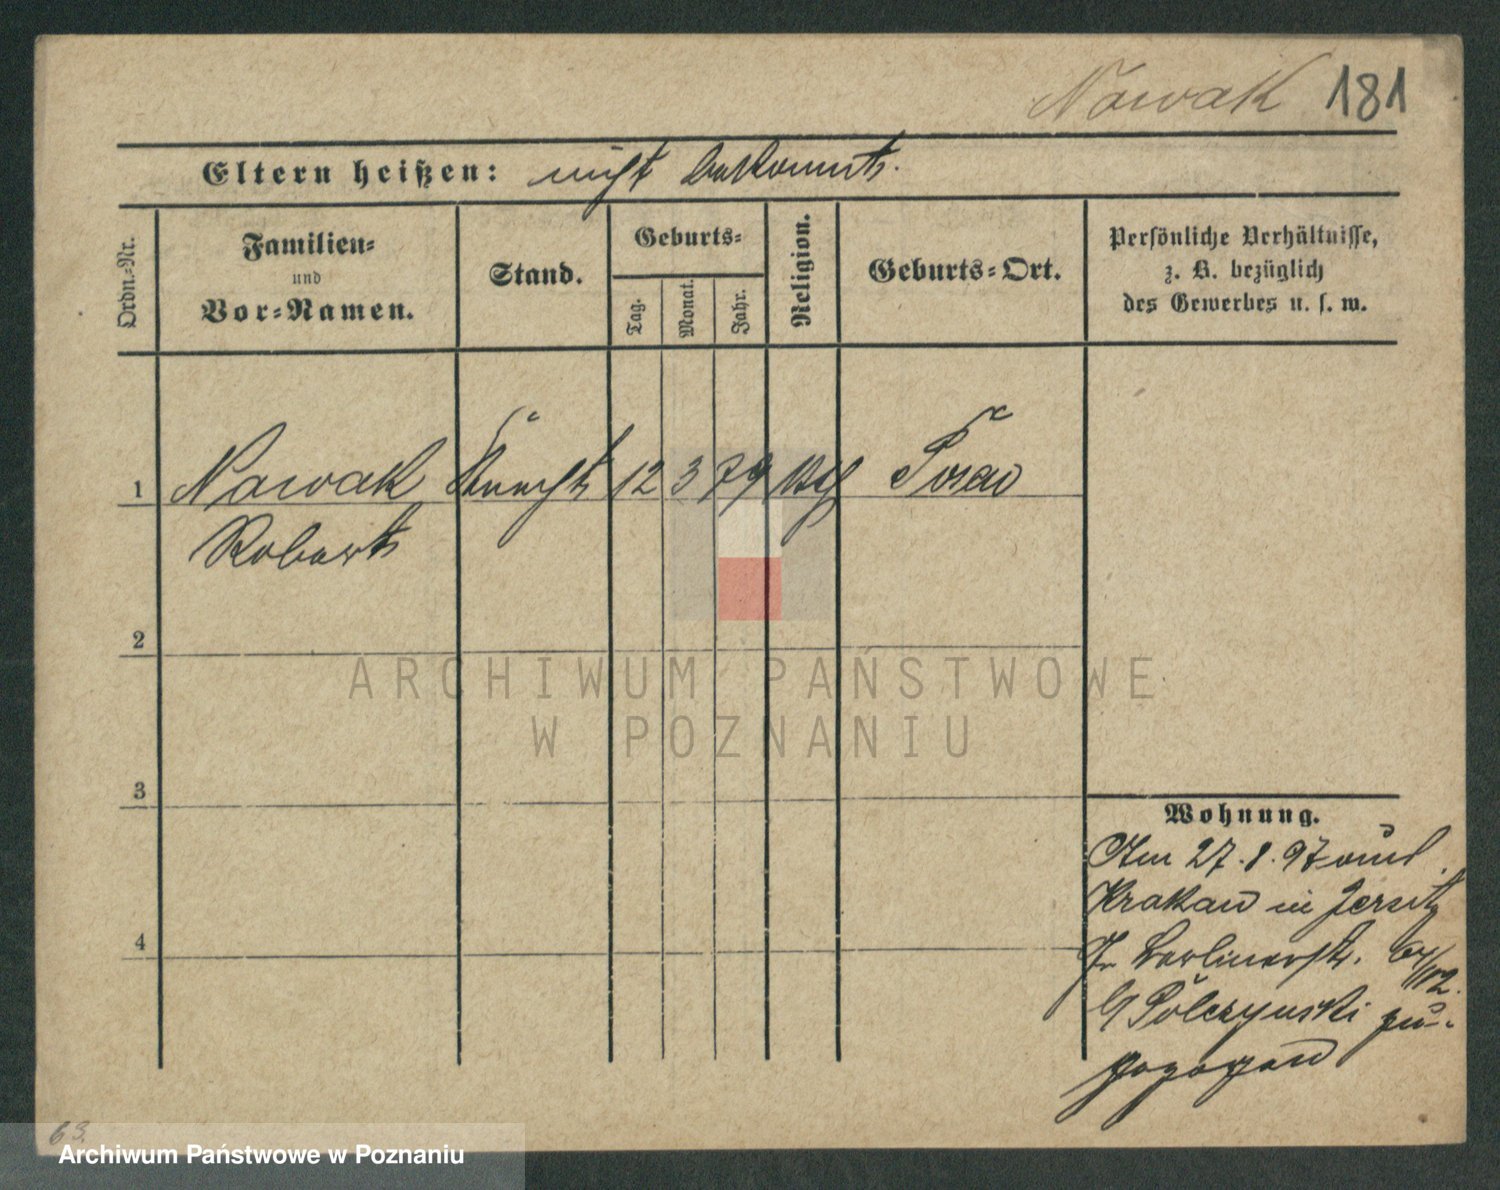 Nowak 181
Eltern heißen: nicht bekannt.
Ordn.-Nr.
Familien-
und
Vor-Namen.
Stand.
Geburts-
Tag.
Monat.
Jahr.
Religion.
Geburts-Ort.
Persönliche Verhältnisse,
z. B. bezüglich
des Gewerbes u. s. w.
1 Nowak Knecht 12 3 79 Posen
Robert
2
3
4
ARCHIWUM PAŃSTWOWE
W POZNANIU
Wohnung.
Am 27. 8. 97 aus
Krakau in Jersitz
Gr Berlinerstr.
Polczynski zu-
gezogen
63.
Archiwum Państwowe w Poznaniu